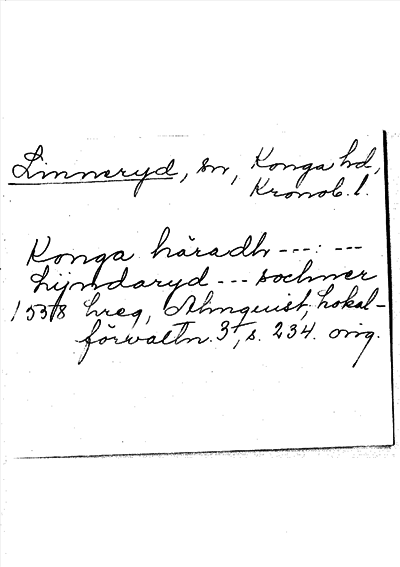 Linneryd, sn, Konga hd,
Kronob. l.
Konga häradh ---:---
Lijndaryd --- sochner
1538 hreg, Almquist, Lokal-
förvaltn. 3, s. 234. orig.